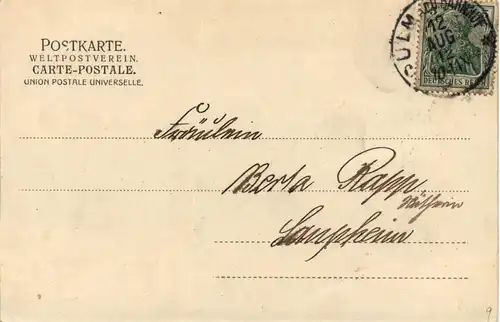 POSTKARTE.
WELTPOSTVEREIN.
CARTE-POSTALE.
UNION POSTALE UNIVERSELLE.
ULM
12
AUG
DEUTSCHES
Fräulein
Berta Rapp
Laupheim
9